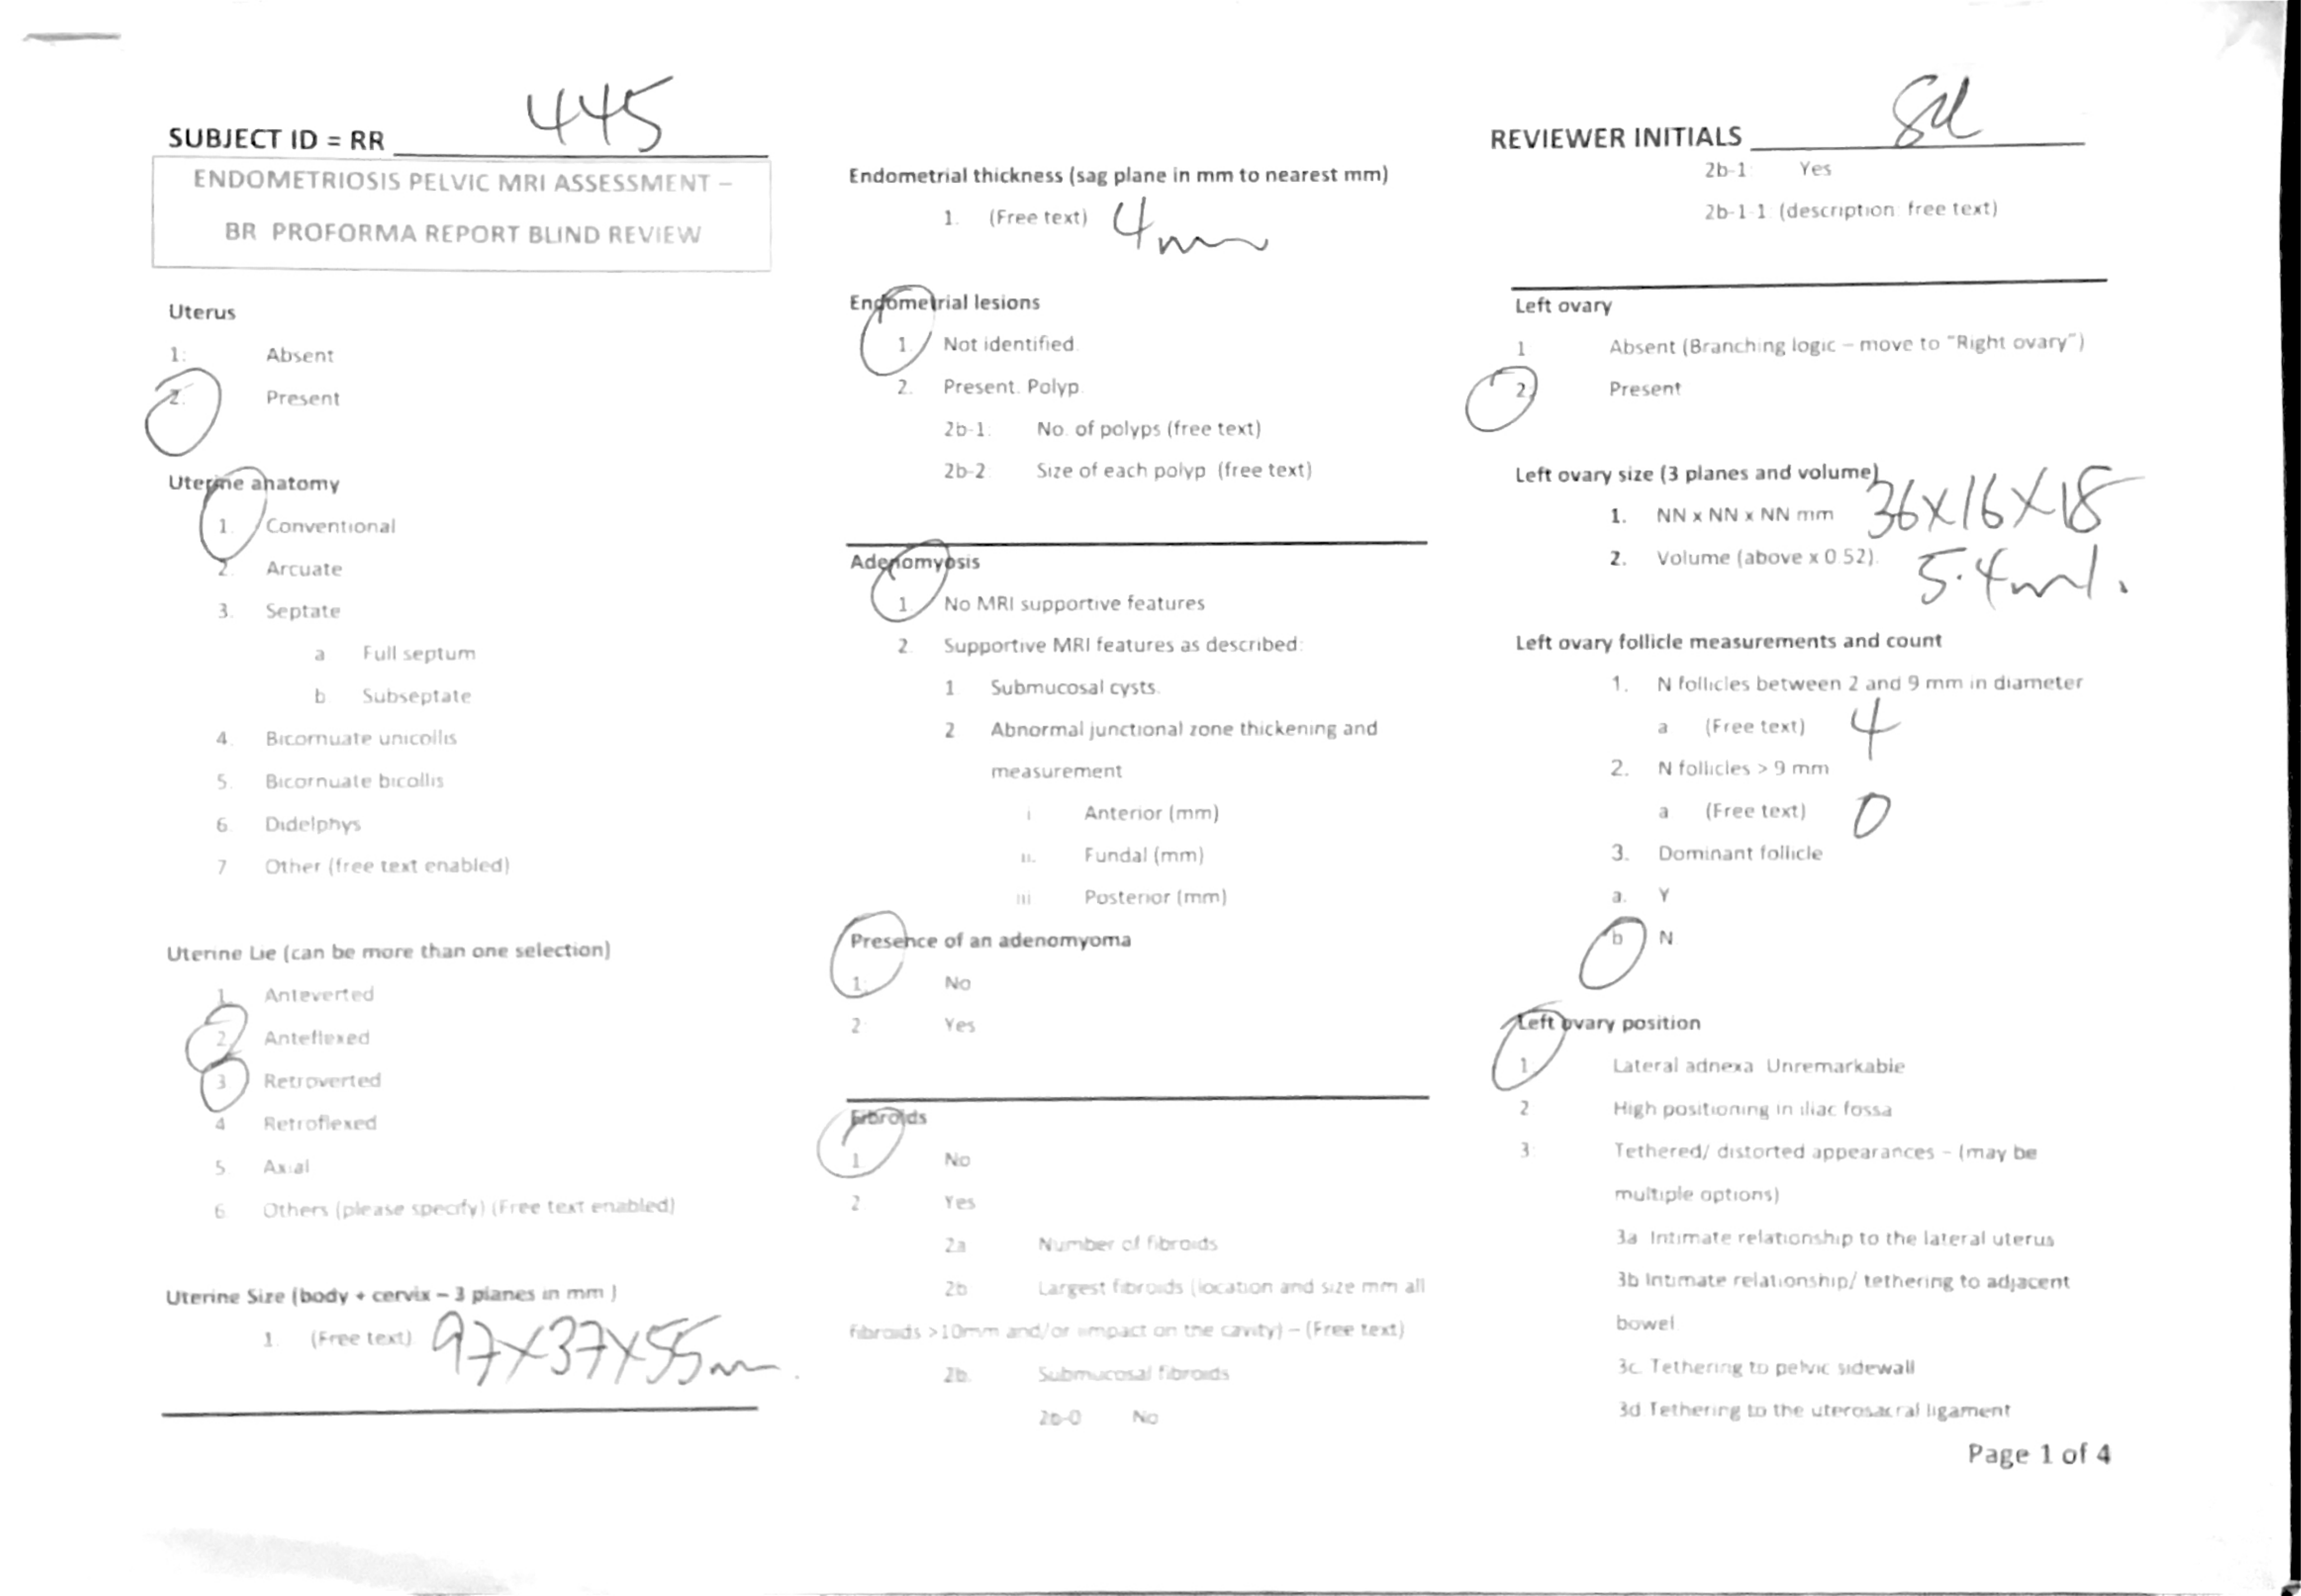 SUBJECT ID = RR 445
ENDOMETRIOSIS PELVIC MRI ASSESSMENT –
BR PROFORMA REPORT BLIND REVIEW
Uterus
1: Absent
2. Present
Uterine anatomy
1. Conventional
2. Arcuate
3. Septate
a Full septum
b. Subseptate
4. Bicornuate unicollis
5. Bicornuate bicollis
6. Didelphys
7 Other (free text enabled)
Uterine Lie (can be more than one selection)
1. Anteverted
2. Anteflexed
3 Retroverted
4 Retroflexed
5. Axial
6. Others (please specify) (Free text enabled)
Uterine Size (body + cervix – 3 planes in mm )
1. (Free text) 97x37x55mm.
Endometrial thickness (sag plane in mm to nearest mm)
1. (Free text) 4mm
Endometrial lesions
1. Not identified.
2. Present. Polyp.
2b-1: No. of polyps (free text)
2b-2 Size of each polyp (free text)
Adenomyosis
1. No MRI supportive features
2. Supportive MRI features as described:
1 Submucosal cysts.
2 Abnormal junctional zone thickening and
measurement
i Anterior (mm)
ii. Fundal (mm)
iii Posterior (mm)
Presence of an adenomyoma
1: No
2: Yes
Fibroids
1 No
2 Yes
2a Number of fibroids
2b Largest fibroids (location and size mm all
fibroids >10mm and/or impact on the cavity) – (Free text)
2b. Submucosal fibroids
2b-0 No
REVIEWER INITIALS
2b-1: Yes
2b-1-1: (description: free text)
Left ovary
1 Absent (Branching logic – move to "Right ovary")
2. Present
Left ovary size (3 planes and volume)
1. NN x NN x NN mm 36x16x18
2. Volume (above x 0.52). 5.4ml.
Left ovary follicle measurements and count
1. N follicles between 2 and 9 mm in diameter
a (Free text) 4
2. N follicles > 9 mm
a (Free text) 0
3. Dominant follicle
a. Y
b N
Left ovary position
1: Lateral adnexa Unremarkable
2 High positioning in iliac fossa
3: Tethered/ distorted appearances – (may be
multiple options)
3a Intimate relationship to the lateral uterus
3b Intimate relationship/ tethering to adjacent
bowel
3c. Tethering to pelvic sidewall
3d.Tethering to the uterosacral ligament
Page 1 of 4